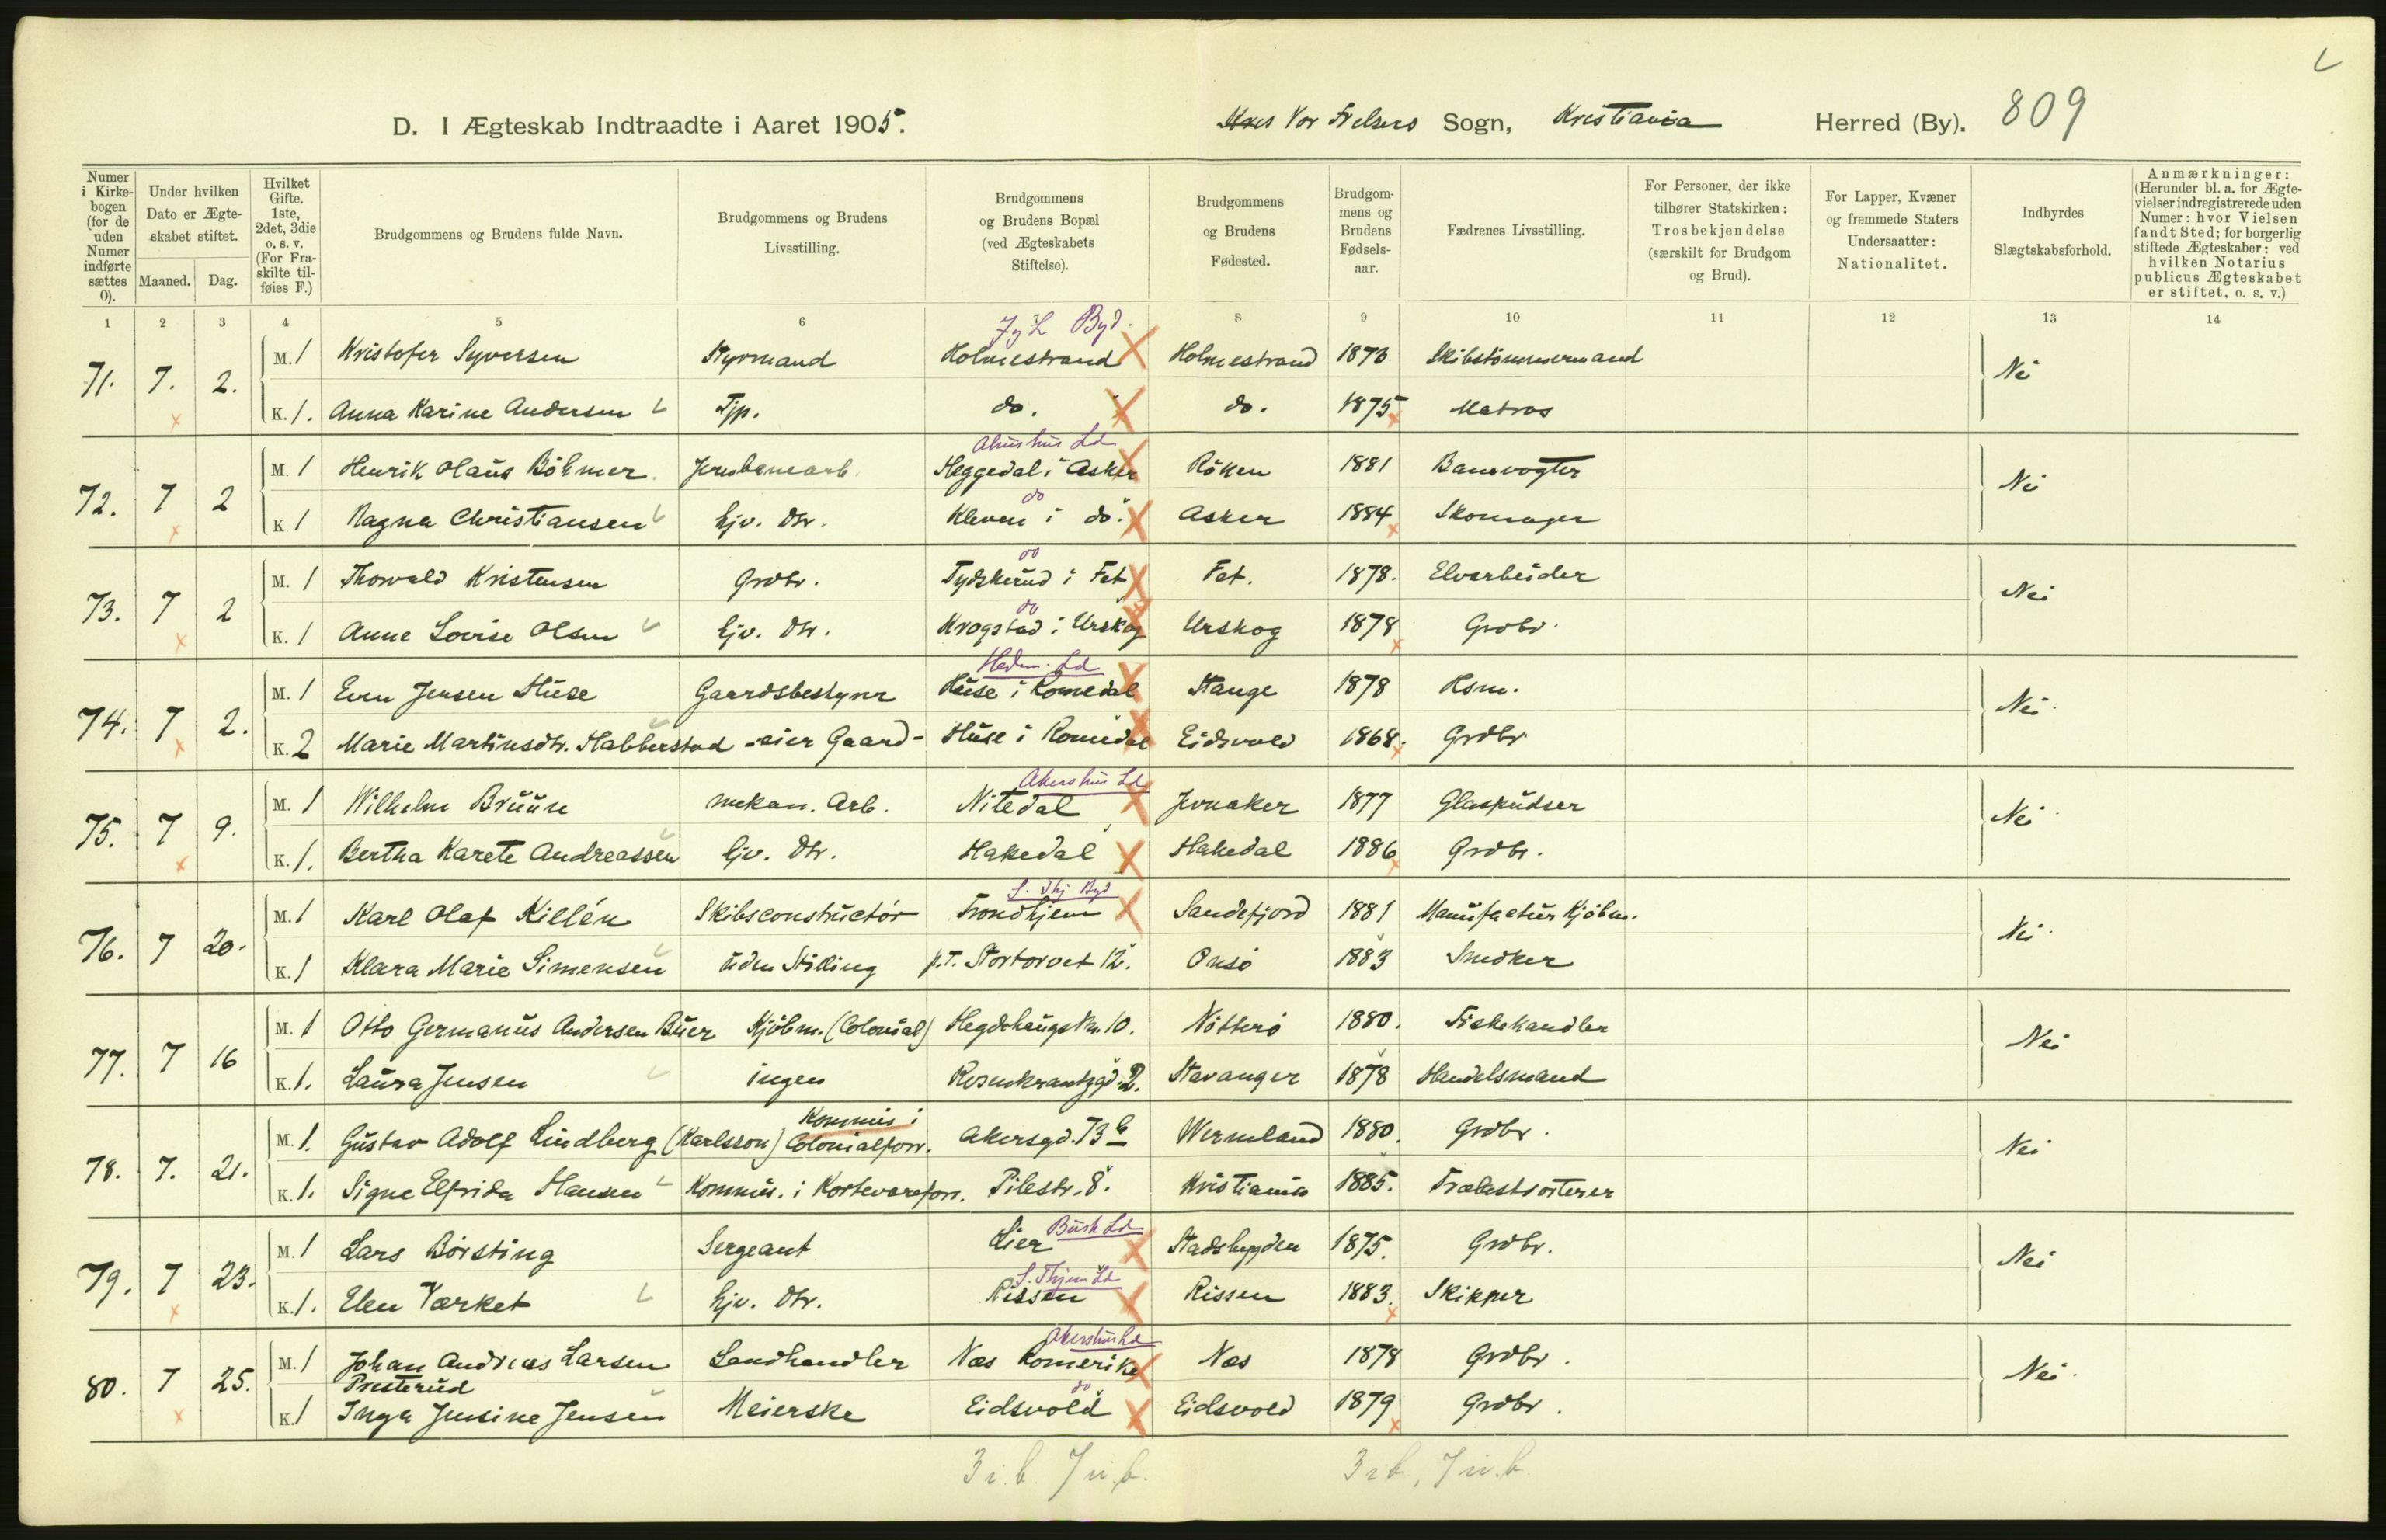 D. I Ægteskab Indtraadte i Aaret 1905. Vor Frelsers Sogn, Kristiania Herred (By). 809
Numer i Kirkebogen (for de uden Numer indførte sættes 0).
Under hvilken Dato er Ægteskabet stiftet.
Maaned. Dag.
Hvilket Gifte. 1ste, 2det, 3die o. s. v. (For Fraskilte tilføies F.)
Brudgommens og Brudens fulde Navn.
Brudgommens og Brudens Livsstilling.
Brudgommens og Brudens Bopæl (ved Ægteskabets Stiftelse).
Brudgommens og Brudens Fødested.
Brudgommens og Brudens Fødselsaar.
Fædrenes Livsstilling.
For Personer, der ikke tilhører Statskirken: Trosbekjendelse (særskilt for Brudgom og Brud).
For Lapper, Kvæner og fremmede Staters Undersaatter: Nationalitet.
Indbyrdes Slægtskabsforhold.
Anmærkninger: (Herunder bl. a. for Ægtevielser indregistrerede uden Numer: hvor Vielsen fandt Sted; for borgerlig stiftede Ægteskaber: ved hvilken Notarius publicus Ægteskabet er stiftet, o. s. v.)
1 2 3 4 5 6 7 8 9 10 11 12 13 14
J & L Byd.
71. 7. 2. M. 1 Kristofer Syversen Styrmand Holmestrand Holmestrand 1873 Skibstömmermand Nei
K. 1. Anna Karine Andersen Tjp. do. do. 1875 Matros
Akershus Ld
72. 7 2 M. 1 Henrik Olaus Böhmer Jernbanearb. Heggedal i Asker Röken 1881 Banevogter Nei
do
K 1 Ragna Christiansen hjv. Dtr. Kleven i do. Asker 1884 Skomager
do
73. 7 2 M. 1 Thorvald Kristensen Grdbr. Tydskerud i Fet Fet. 1878. Elvarbeider Nei
do
K. 1 Anne Lovise Olsen hjv. Dtr. Krogstad i Urskog Urskog 1878 Grdbr.
Hedm. Ld
74. 7 2. M. 1 Even Jensen Huse Gaardsbestyrer Huse i Romedal Stange 1878 Hsm. Nei
K. 2 Marie Martinsdtr. Habberstad -eier Gaard- Huse i Romedal Eidsvold 1868. Grdbr
Akershus Ld
75. 7 9. M. 1 Wilhelm Bruun mekan. Arb. Nitedal Jevnaker 1877 Glaspudser Nei
K. 1. Bertha Karete Andreassen hjv. Dtr. Hakedal Hakedal 1886 Grdbr.
S. Thj Byd
76. 7 20. M. 1 Karl Olaf Killén Skibsconstructör Trondhjem Sandefjord 1881 Manufactur Kjöbm. Nei
K. 1 Klara Marie Simensen uden Stilling p.T. Stortorvet 12. Onsö 1883 Snedker
77. 7 16 M. 1 Otto Germanus Andersen Buer Kjöbm. (Colonial) Hegdehaugsv. 10. Nötterö 1880. Fiskehandler Nei
K. 1. Laura Jensen ingen Rosenkrantzgd. 2. Stavanger 1878 Handelsmand
Kommis i
78. 7. 21. M. 1. Gustav Adolf Lindberg (Karlsson) Colonialforr. Akersgd. 73 b Wermland 1880. Grdbr. Nei
K. 1. Signe Elfrida Hansen Kommis. i Kortevareforr. Pilestr. 8. Kristiania 1885. Trælastsorterer
Busk Ld
79. 7 23. M. 1 Lars Börsting Sergeant Lier Stadsbygden 1875. Grdbr. Nei
S. Thjem Ld
K. 1. Elen Værket hjv. Dtr. Rissen Rissen 1883. Skipper
Akershus Ld
80. 7 25. M. 1 Johan Andreas Larsen Landhandler Næs Romerike Næs 1878 Grdbr. Nei
Presterud
do
K. 1 Inga Jensine Jensen Meierske Eidsvold Eidsvold 1879 Grdbr.
3 i.b. 7 u.b. 3 i.b. 7 u.b.